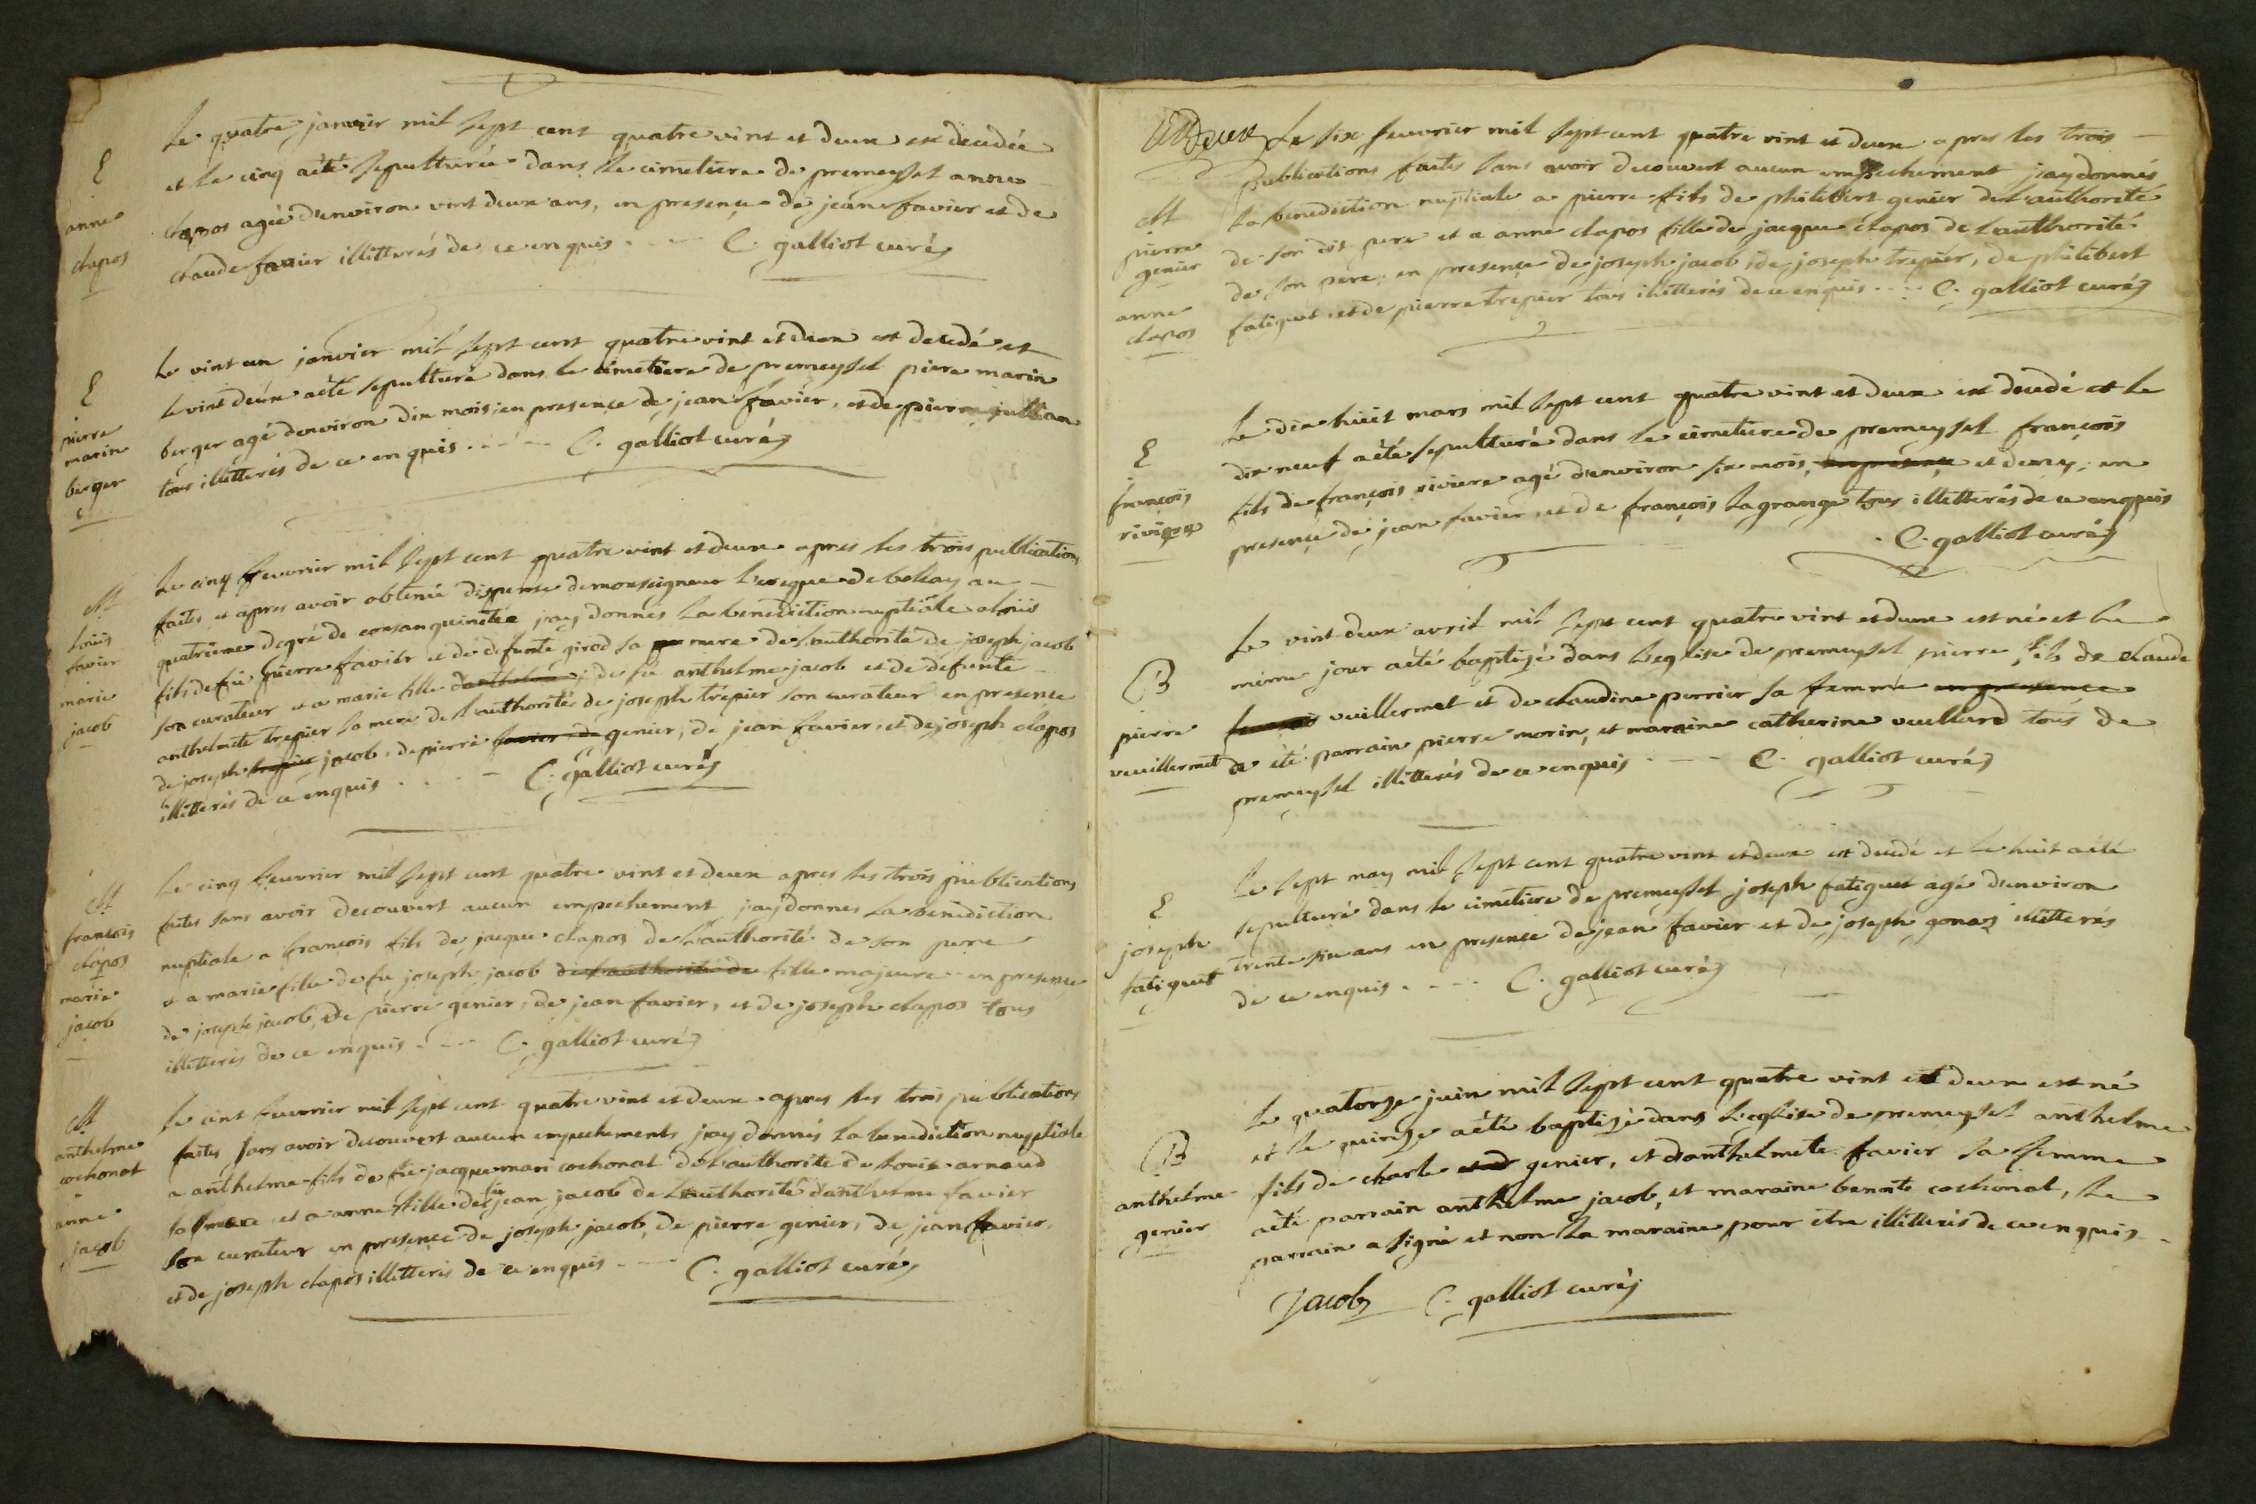 E
anne
clapos
Le quatre janvier mil sept cent quatre vint et deux est decedée
et le cinq aété sepulturée dans le cimetiere de premeysel anne
clapos agée denviron vint deux ans, en presençe de jean favier et de
claude favier illitterés de ce enquis .... C. galliot curé
E
pierre
marin
berger
Le vint un janvier mil sept cent quatre vint et deux est decedé et
le vint deux aété sepulturé dans le cimetiere de premeysel piere marin
berger agé denviron dix mois; en presençe de jean favier, et de pierre jullian
tous illitterés de ce enquis ..... C. galliot curé
M
Loüis
favier
marie
jacob
Le cinq feuvrier mil sept cent quatre vint et deux apres les trois publications
faites, et apres avoir obtenüe dispense de monseigneur leveque de bellay au
quatriême degré de consanguinitée jay donnés la benediction nuptiale a loüis
fils de fü pierre favier et de defunte girod sa mere de l'authorité de joseph jacob
son curateur et a marie fille de fü anthelme jacob et de defunte
anthelmete trepier sa mere de l'authorité de joseph trepier son curateur en presençe
de joseph jacob, de pierre genier, de jean favier, et de joseph clapos
illitterés de ce enquis .... C. galliot curé
M
francois
clapos
marie
jacob
Le cinq feuvrier mil sept cent quatre vint et deux apres les trois publications
faites sans avoir decouvert aucun empechement jay donnes la benediction
nuptiale a françois fils de jacque clapos de l'authorité de son pere
et a marie fille de fü joseph jacob de l'authorité de fille majeure en presençe
de joseph jacob, de pierre genier, de jean favier, et de joseph clapos tous
illitterés de ce enquis .... C. galliot curé
M
anthelme
cochonat
anne
jacob
Le cint feuvrier mil sept cent quatre vint et deux apres les trois publications
faites sans avoir decouvert aucun empechements jay donnés la benediction nuptiale
a anthelme fils de fü jacque mari cochonat de l'authorite de louis arnaud
sa mere et a anne fille de fü jean jacob de l'authorité danthelme favier
son curateur en presençe de joseph jacob, de pierre genier, de jean favier,
et de joseph clapos illitterés de ce enquis .... C. galliot curé
M
pierre
genier
anne
clapos
Le six feuvrier mil sept cent quatre vint et deux apres les trois
publications faites sans avoir decouvert aucun empechement jay donnés
la benediction nuptiale a pierre fils de philibert genier de l'authorité
de son dit pere et a anne clapos fille de jacque clapos de l'authorité
de son pere; en presençe de joseph jacob, de joseph trepier, de philibert
fatiguet et de pierre trepier tous illitterés de ce enquis .... C. galliot curé
E
françois
riviere
Le dix huit mars mil sept cent quatre vint et deux est decedé et le
dix neuf aété sepulturé dans le cimetiere de premeysel françois
fils de françois riviere agé denviron six mois, en presençe et demy, en
presençe de jean favier, et de françois lagrange tous illitterés de ce enquis
C. galliot curé
B
pierre
veuillermet
Le vint deux avril mil sept cent quatre vint et deux est né et le
même jour aété baptizé dans l'eglise de premeysel pierre fils de claude
veuillermet et de claudine perrier sa femme en presence
a été parrain pierre morin, et maraine catherine veullerd tous de
premeysel illitterés de ce enquis .... C. galliot curé
E
joseph
fatiguet
Le sept may mil sept cent quatre vint et deux est decedé et le huit aété
sepulturé dans le cimetiere de premeysel joseph fatiguet agé denviron
trente six ans en presençe de jean favier et de joseph gonaz illitterés
de ce enquis .... C. galliot curé
B
anthelme
genier
Le quatorze juin mil sept cent quatre vint et deux est né
et le quinze aété baptizé dans l'eglise de premeysel anthelme
fils de charle genier, et danthelmete favier sa femme
aété parrain anthelme jacob, et maraine benoite cochonat, le
parrain a signé et non la maraine pour être illitterés de ce enquis
Jacob C. galliot curé